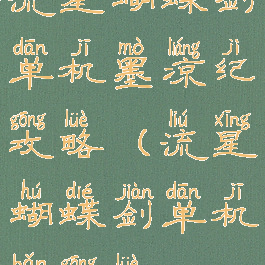 流星蝴蝶剑
dān jī mò liáng jì
单机墨凉纪
gōng lüè liú xīng
攻略（流星
hú dié jiàn dān jī
蝴蝶剑单机
bǎn gōng lüè